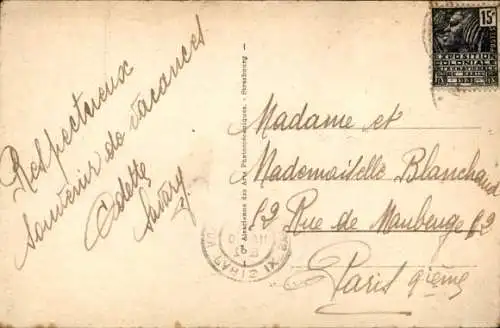 Respectueux
souvenir de vacances
Odette
Savary
Cie Alsacienne des Arts Photomécaniques. - Strasbourg
15c
EXPOSITION
COLONIALE
INTERNATIONALE
PARIS
1931
Madame et
Mademoiselle Blanchard
62 Rue de Maubeuge 62
Paris 9ième
PARIS XI